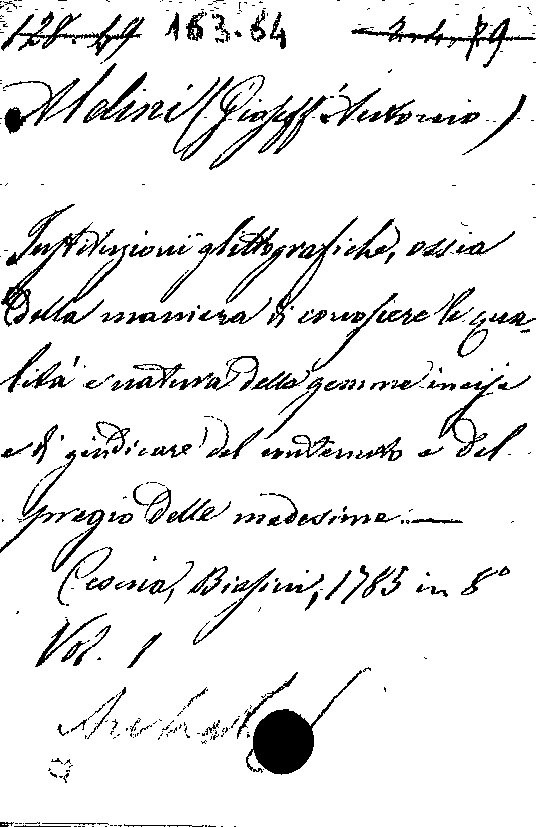 128.49 163.64 79
Aldini (Gioseff'Antonio)
Instituzioni glittografiche, ossia
della maniera di conoscere le qua-
lità e natura delle gemme incise
e di giudicare del contenuto e del
pregio delle medesime.—
Cesena, Biasini, 1785 in 8°
Vol. 1